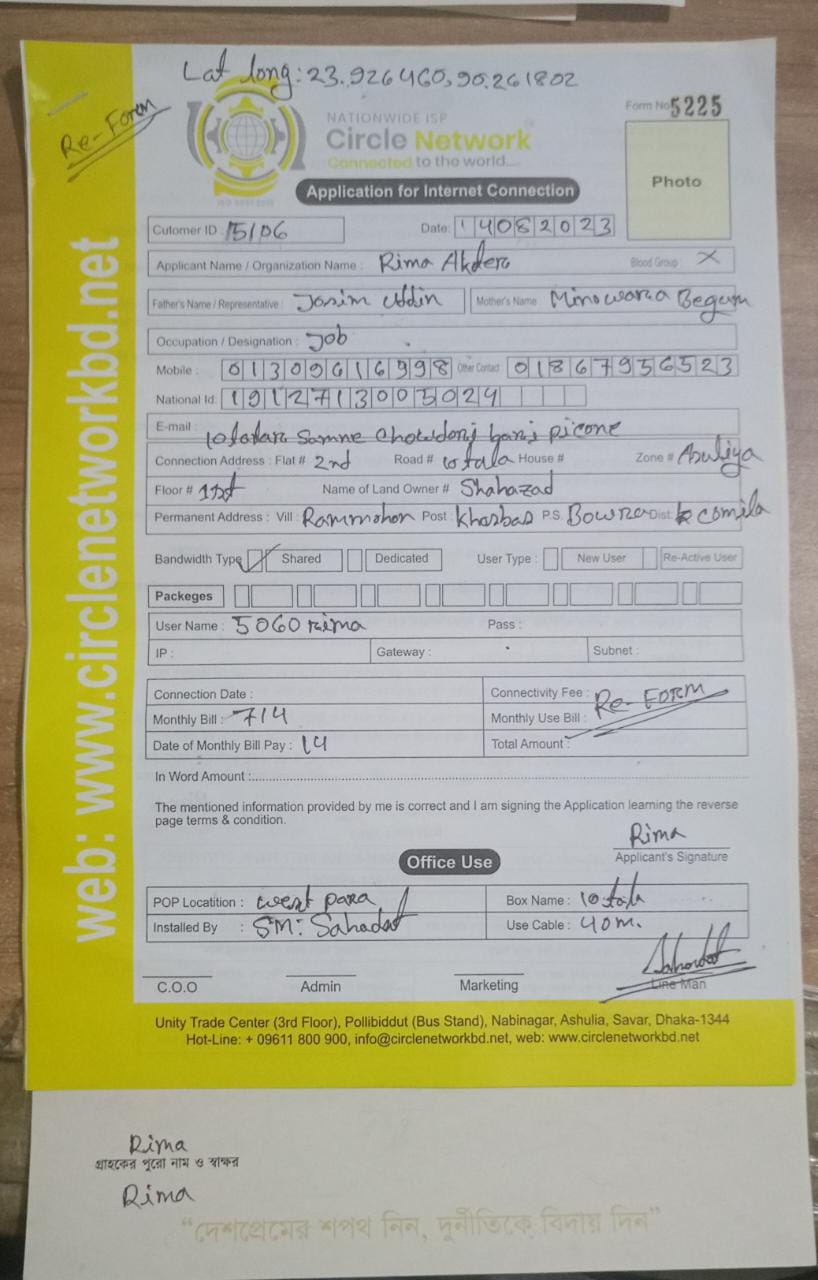 Lat long: 23.926460,90.261802
Re-Form
NATIONWIDE ISP
Form No 5225
Circle Network
Connected to the world....
Photo
Application for Internet Connection
Cutomer ID : 15106
Date: 14082023
Applicant Name / Organization Name : Rima Akter
Blood Group : X
Father's Name / Representative : Josim Uddin
Mother's Name : Minowara Begum
Occupation / Designation : Job
Mobile : 01309616998 Other Contact 01867956523
National Id 1912713005024
E-mail :
10 talar Samne Chowdori bari picone
Connection Address : Flat # 2nd Road # 10 tala House # Zone # Asuliya
Floor # 1st Name of Land Owner # Shahazad
Permanent Address : Vill : Rammohon Post : Khasbas P.S. Dist: comila
Bandwidth Type Shared Dedicated User Type : New User Re-Active User
Packeges
User Name : 5060rima Pass :
IP : Gateway : Subnet :
Connection Date : Connectivity Fee : Re-FORM
Monthly Bill : 714 Monthly Use Bill :
Date of Monthly Bill Pay : 14 Total Amount :
In Word Amount :
The mentioned information provided by me is correct and I am signing the Application learning the reverse
page terms & condition.
Rima
Applicant's Signature
Office Use
POP Locatition : west para Box Name : 10 tala
Installed By : SM: Sahadat Use Cable : 40 m.
Sahadat
C.O.O Admin Marketing Line Man
Unity Trade Center (3rd Floor), Pollibiddut (Bus Stand), Nabinagar, Ashulia, Savar, Dhaka-1344
Hot-Line: + 09611 800 900, info@circlenetworkbd.net, web: www.circlenetworkbd.net
web: www.circlenetworkbd.net
Rima
গ্রাহকের পুরো নাম ও স্বাক্ষর
Rima
“দেশপ্রেমের শপথ নিন, দুর্নীতিকে বিদায় দিন”